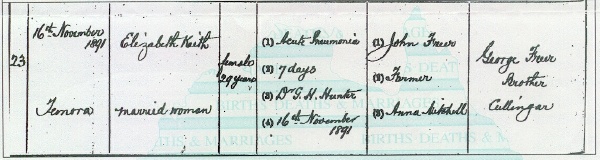 23
16th November
1891
Temora
Elizabeth Keith
married woman
female
29 years
(1) Acute Pneumonia
(2) 7 days
(3) Dr G. H. Hunter
(4) 16th November
1891
(1) John Freer
(2) Farmer
(3) Anna Mitchell
George Freer
Brother
Cullingar
BIRTHS DEATHS & MARRIAGES
THS & MARRIAGES
BIRTHS DEATHS & M